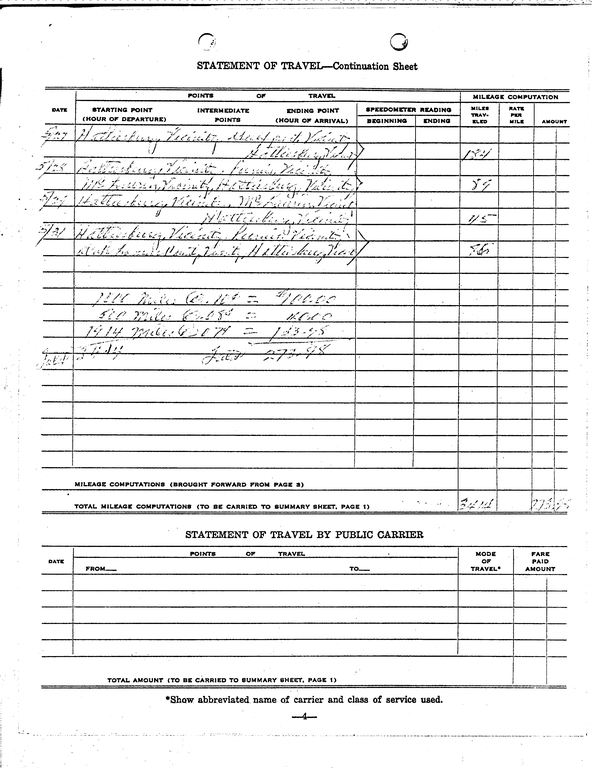 STATEMENT OF TRAVEL—Continuation Sheet
POINTS OF TRAVEL MILEAGE COMPUTATION
DATE STARTING POINT INTERMEDIATE ENDING POINT SPEEDOMETER READING MILES RATE
(HOUR OF DEPARTURE) POINTS (HOUR OF ARRIVAL) BEGINNING ENDING TRAV- PER AMOUNT
ELED MILE
5/27 Hattiesburg, Vicinity,
Hattiesburg, Vicinity 134
5/28 Hattiesburg, Vicinity, Vicinity
McLaurin, Vicinity, Hattiesburg, Vicinity 89
Hattiesburg, Vicinity, McLaurin, Vicinity
Hattiesburg, Vicinity 45
5/31 Hattiesburg, Vicinity, Vicinity
Vicinity, Hattiesburg, Vicinity
1000 Miles @ .10¢ = $100.00
500 Miles @ .08¢ = 40.00
1914 Miles @ .07¢ = 133.98
Total 3414 273.98
MILEAGE COMPUTATIONS (BROUGHT FORWARD FROM PAGE 3)
TOTAL MILEAGE COMPUTATIONS (TO BE CARRIED TO SUMMARY SHEET, PAGE 1) 3414 273.98
STATEMENT OF TRAVEL BY PUBLIC CARRIER
POINTS OF TRAVEL MODE FARE
DATE OF PAID
FROM— TO— TRAVEL* AMOUNT
TOTAL AMOUNT (TO BE CARRIED TO SUMMARY SHEET, PAGE 1)
*Show abbreviated name of carrier and class of service used.
—4—